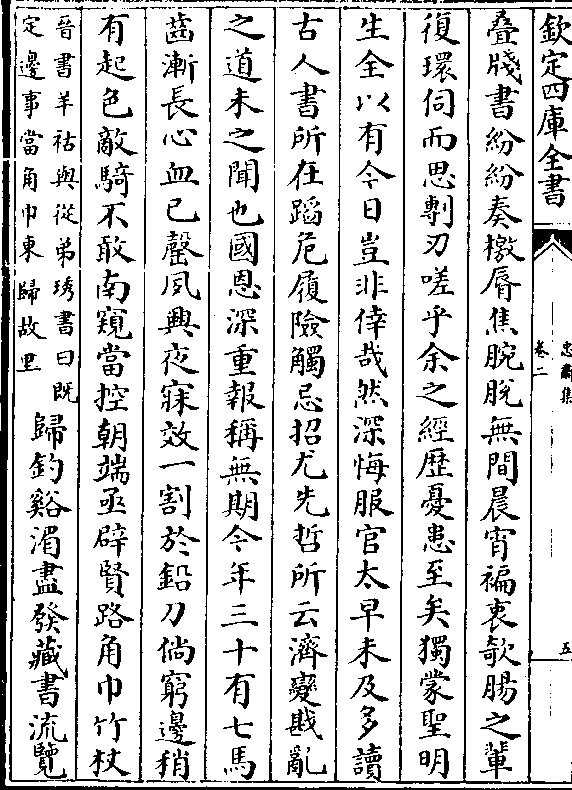 欽定四庫全書
忠肅集
卷二
五
叠牋書紛紛奏檄脣焦腕脫無間晨宵褊衷欹腸之輩
復環伺而思剸刃嗟乎余之經歴憂患至矣獨蒙聖明
生全以有今日豈非倖哉然深悔服官太早未及多讀
古人書所在蹈危履險觸忌招尤先哲所云濟變戡亂
之道未之聞也國恩深重報稱無期今年三十有七馬
齒漸長心血已罄夙興夜寐效一割於鉛刀倘窮邊稍
有起色敵騎不敢南窺當控朝端亟辟賢路角巾竹杖
晉書羊祜與從弟琇書曰既
定邊事當角巾東歸故里
歸釣谿湄盡發藏書流覽